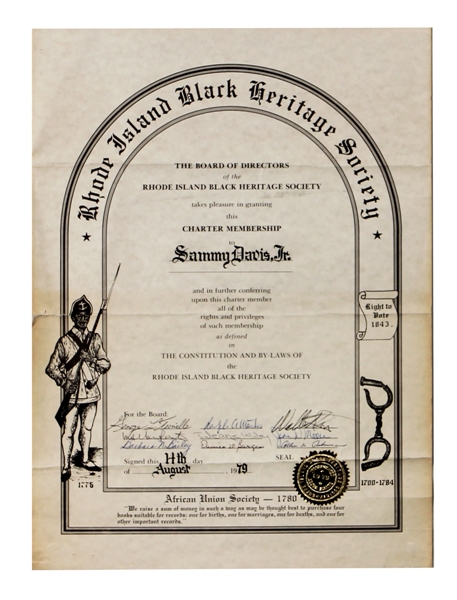 Rhode Island Black Heritage Society
THE BOARD OF DIRECTORS
of the
RHODE ISLAND BLACK HERITAGE SOCIETY
takes pleasure in granting
this
CHARTER MEMBERSHIP
to
Sammy Davis, Jr.
and in further conferring
upon this charter member
all of the
rights and privileges
of such membership
as defined
in
THE CONSTITUTION AND BY-LAWS of the
RHODE ISLAND BLACK HERITAGE SOCIETY
Right to
Vote
1843
For the Board:
Signed this 14th day
of August, 1979
SEAL
1775
1700-1784
African Union Society — 1780
"We raise a sum of money in such a way as may be thought best to purchase four
books suitable for records: one for births, one for marriages, one for deaths, and one for
other important records."